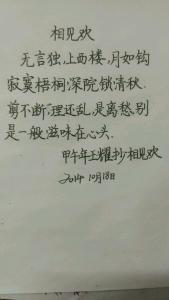 相见欢
无言独上西楼,月如钩
寂寞梧桐深院锁清秋.
剪不断,理还乱,是离愁,别
是一般滋味在心头.
甲午年王耀抄相见欢
2014 10月18日